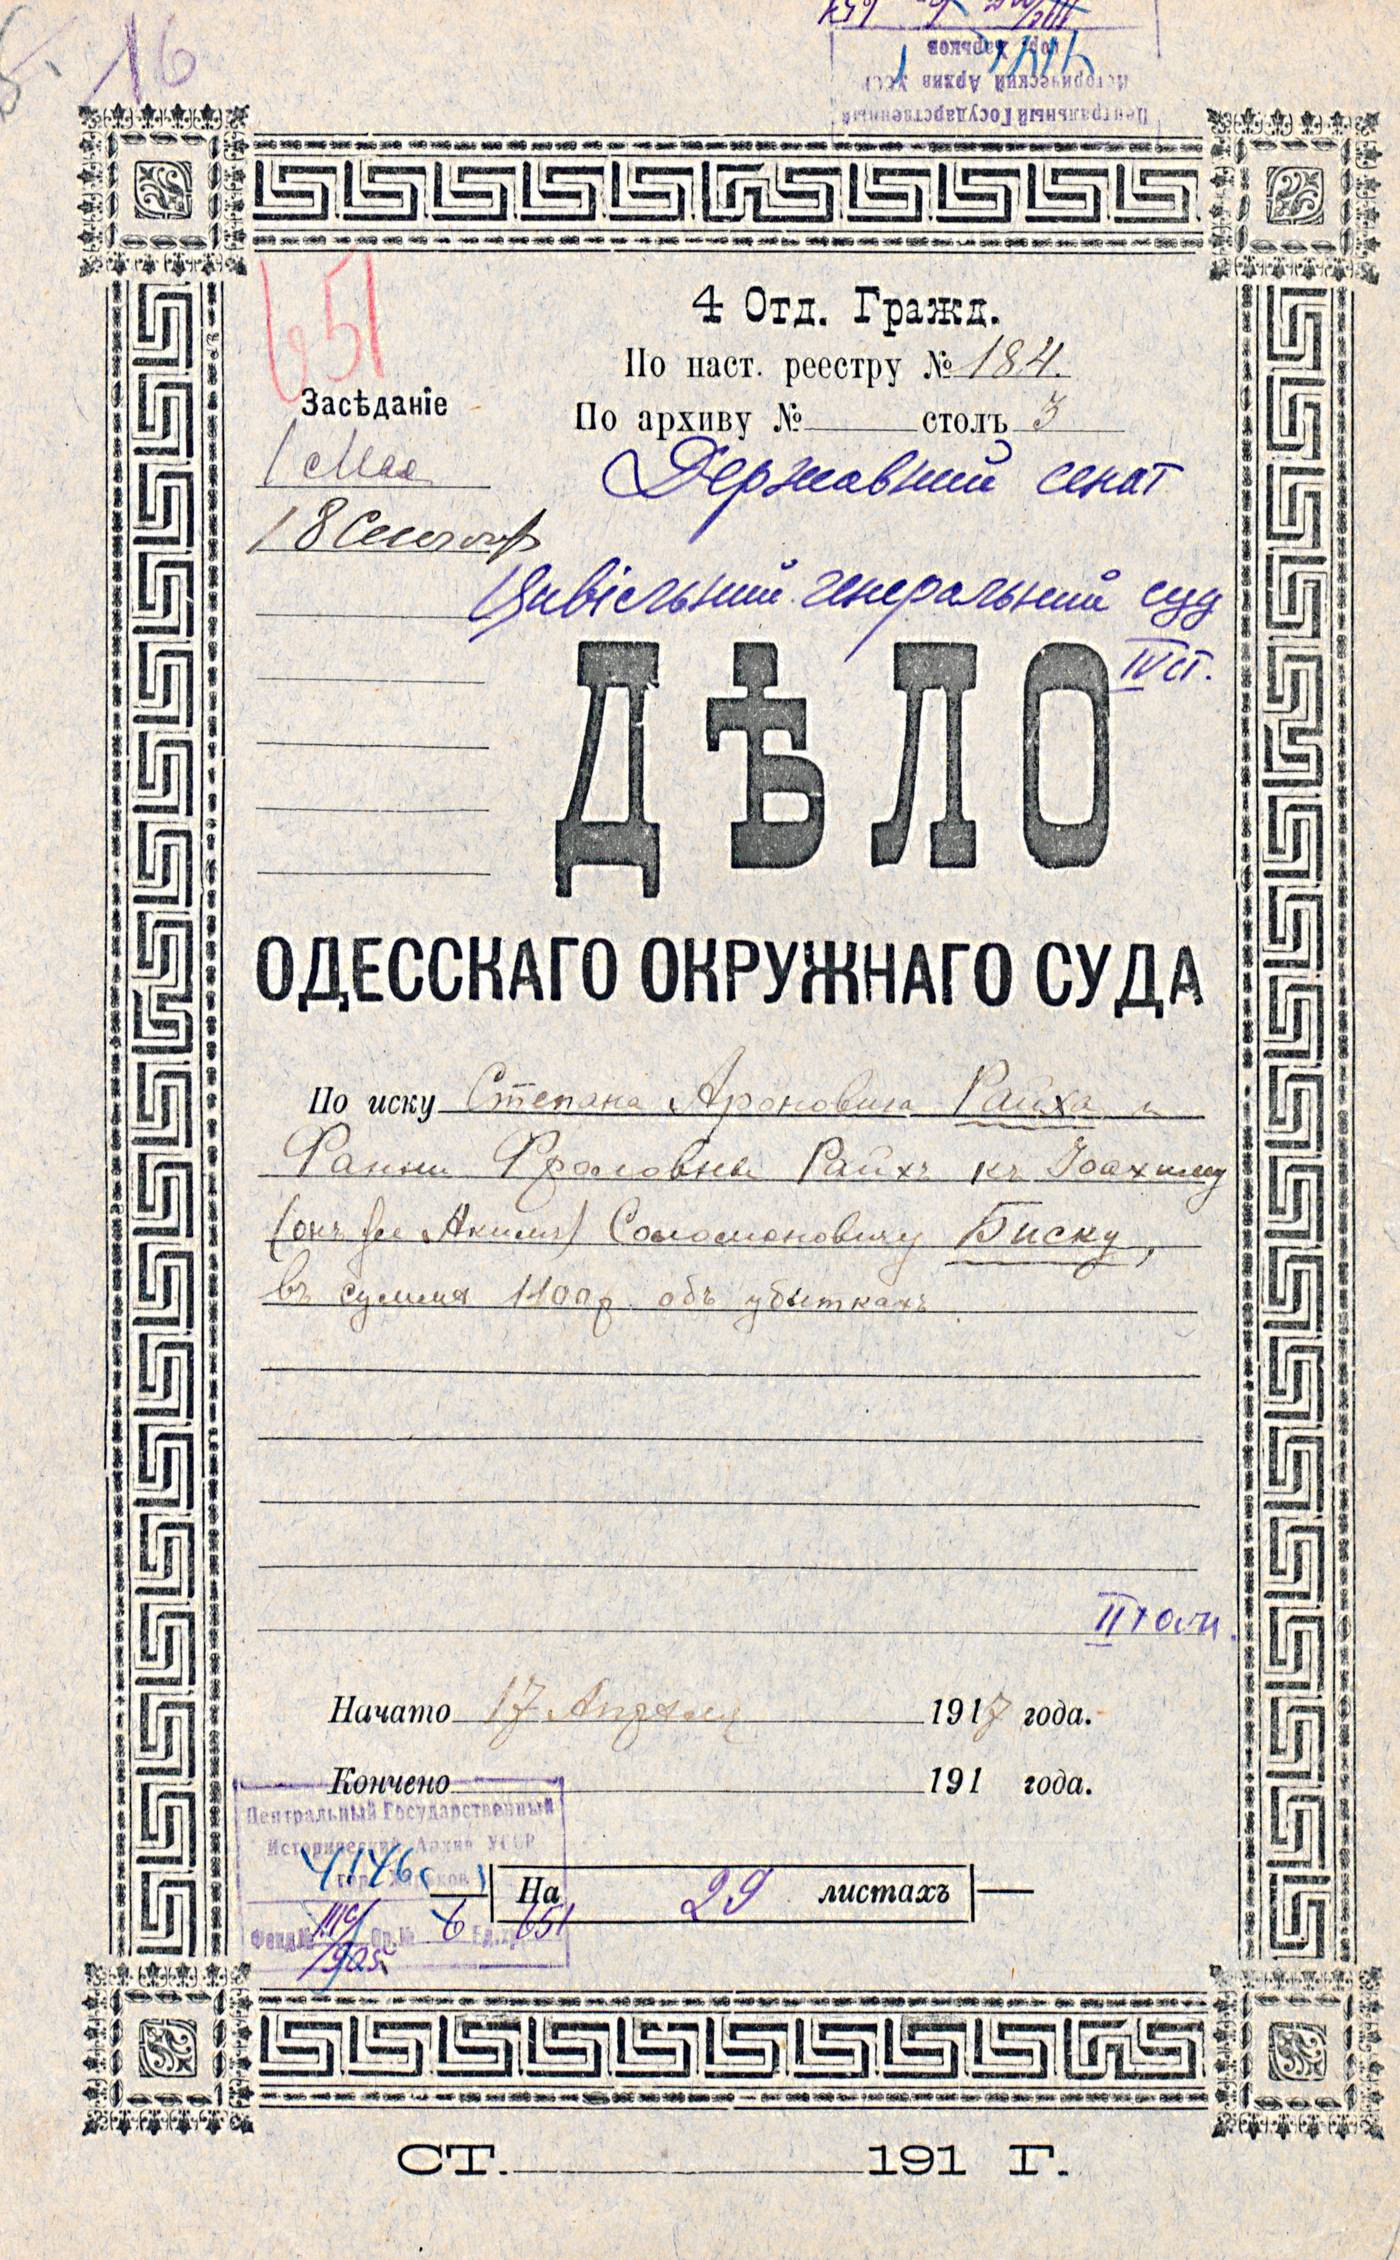 16
Центральный Государственный
Исторический Архив УССР
гор. Харьков
651
4 Отд. Гражд.
По наст. реестру № 184.
Засѣданіе
По архиву № столъ 3
1 Мая
Державний сенат
18 Сентябр
Цивільний генеральний суд
IV ст.
ДѢЛО
ОДЕССКАГО ОКРУЖНАГО СУДА
По иску Степана Ароновича Райха и
Фанни Фроловны Райхъ къ Іоахиму
(онъ же Акимъ) Соломоновичу Биску,
въ суммѣ 1100 р. объ убыткахъ
Начато 17 Апрѣля 1917 года.
Кончено 191 года.
Центральный Государственный
Исторический Архив УССР
4146
гор. Харьков
На 29 листахъ
Фонд № Оп. № 6 Ед. хр. 651
СТ. 191 Г.